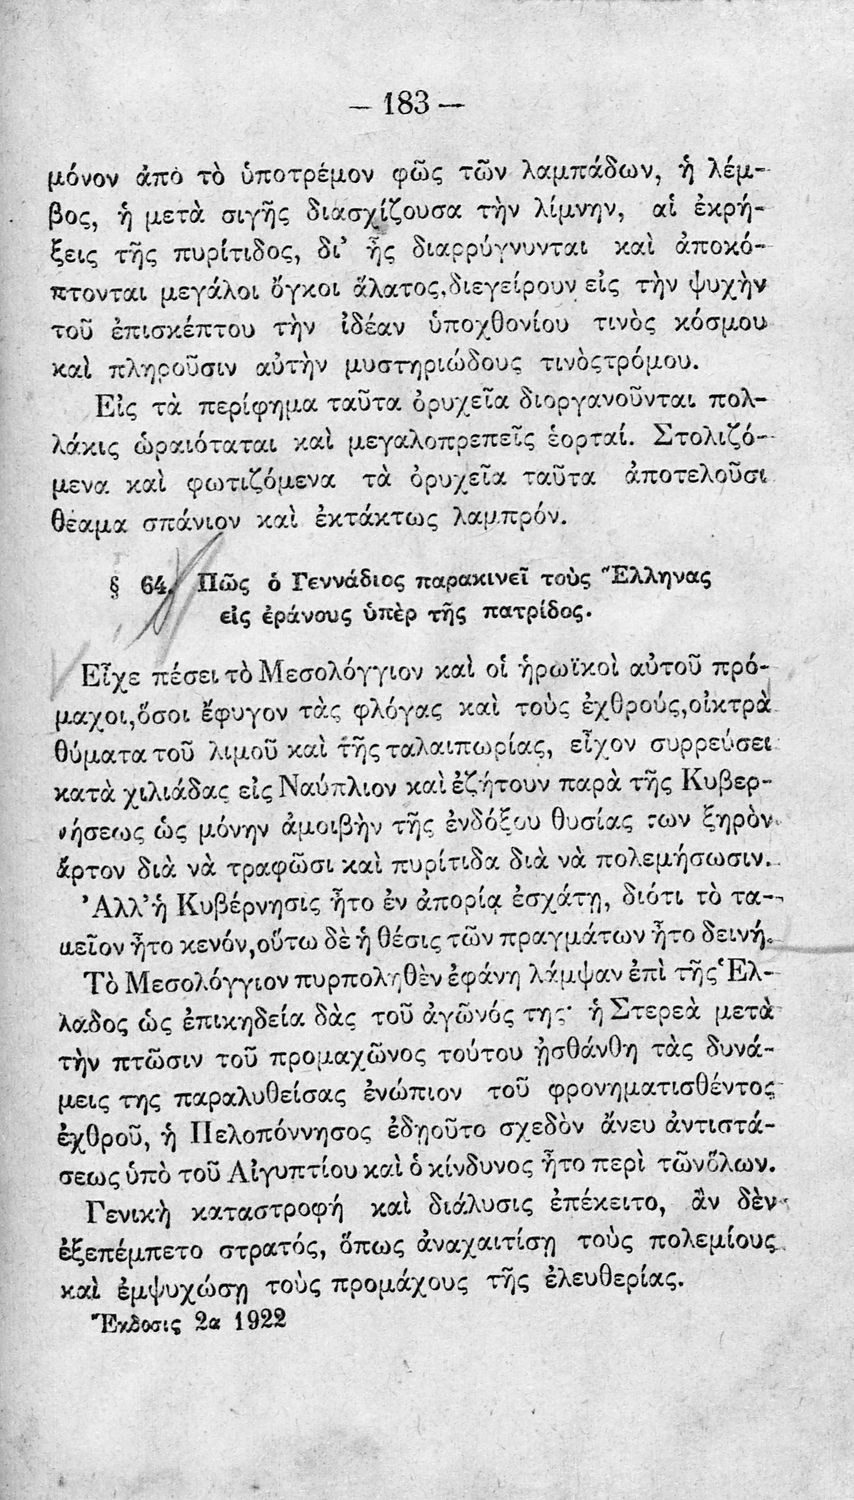 — 183 —
μόνον ἀπὸ τὸ ὑποτρέμον φῶς τῶν λαμπάδων, ἡ λέμ-
βος, ἡ μετὰ σιγῆς διασχίζουσα τὴν λίμνην, αἱ ἐκρή-
ξεις τῆς πυρίτιδος, δι’ ἧς διαρρύγνυνται καὶ ἀποκό-
πτονται μεγάλοι ὄγκοι ἅλατος, διεγείρουν εἰς τὴν ψυχὴν
τοῦ ἐπισκέπτου τὴν ἰδέαν ὑποχθονίου τινὸς κόσμου
καὶ πληροῦσιν αὐτὴν μυστηριώδους τινὸς τρόμου.
Εἰς τὰ περίφημα ταῦτα ὀρυχεῖα διοργανοῦνται πολ-
λάκις ὡραιόταται καὶ μεγαλοπρεπεῖς ἑορταί. Στολιζό-
μενα καὶ φωτιζόμενα τὰ ὀρυχεῖα ταῦτα ἀποτελοῦσι
θέαμα σπάνιον καὶ ἐκτάκτως λαμπρόν.
§ 64. Πῶς ὁ Γεννάδιος παρακινεῖ τοὺς Ἕλληνας
εἰς ἐράνους ὑπὲρ τῆς πατρίδος.
Εἶχε πέσει τὸ Μεσολόγγιον καὶ οἱ ἡρωϊκοὶ αὐτοῦ πρό-
μαχοι, ὅσοι ἔφυγον τὰς φλόγας καὶ τοὺς ἐχθρούς, οἰκτρὰ
θύματα τοῦ λιμοῦ καὶ τῆς ταλαιπωρίας, εἶχον συρρεύσει
κατὰ χιλιάδας εἰς Ναύπλιον καὶ ἐζήτουν παρὰ τῆς Κυβερ-
νήσεως ὡς μόνην ἀμοιβὴν τῆς ἐνδόξου θυσίας των ξηρὸν
ἄρτον διὰ νὰ τραφῶσι καὶ πυρίτιδα διὰ νὰ πολεμήσωσιν.
Ἀλλ’ ἡ Κυβέρνησις ἦτο ἐν ἀπορίᾳ ἐσχάτῃ, διότι τὸ τα-
μεῖον ἦτο κενόν, οὕτω δὲ ἡ θέσις τῶν πραγμάτων ἦτο δεινή.
Τὸ Μεσολόγγιον πυρποληθὲν ἐφάνη λάμψαν ἐπὶ τῆς Ἑλ-
λαδος ὡς ἐπικηδεία δὰς τοῦ ἀγῶνός της· ἡ Στερεὰ μετὰ
τὴν πτῶσιν τοῦ προμαχῶνος τούτου ᾐσθάνθη τὰς δυνά-
μεις της παραλυθείσας ἐνώπιον τοῦ φρονηματισθέντος
ἐχθροῦ, ἡ Πελοπόννησος ἐδῃοῦτο σχεδὸν ἄνευ ἀντιστά-
σεως ὑπὸ τοῦ Αἰγυπτίου καὶ ὁ κίνδυνος ἦτο περὶ τῶν ὅλων.
Γενικὴ καταστροφή καὶ διάλυσις ἐπέκειτο, ἂν δὲν
ἐξεπέμπετο στρατός, ὅπως ἀναχαιτίσῃ τοὺς πολεμίους
καὶ ἐμψυχώσῃ τοὺς προμάχους τῆς ἐλευθερίας.
Ἔκδοσις 2α 1922